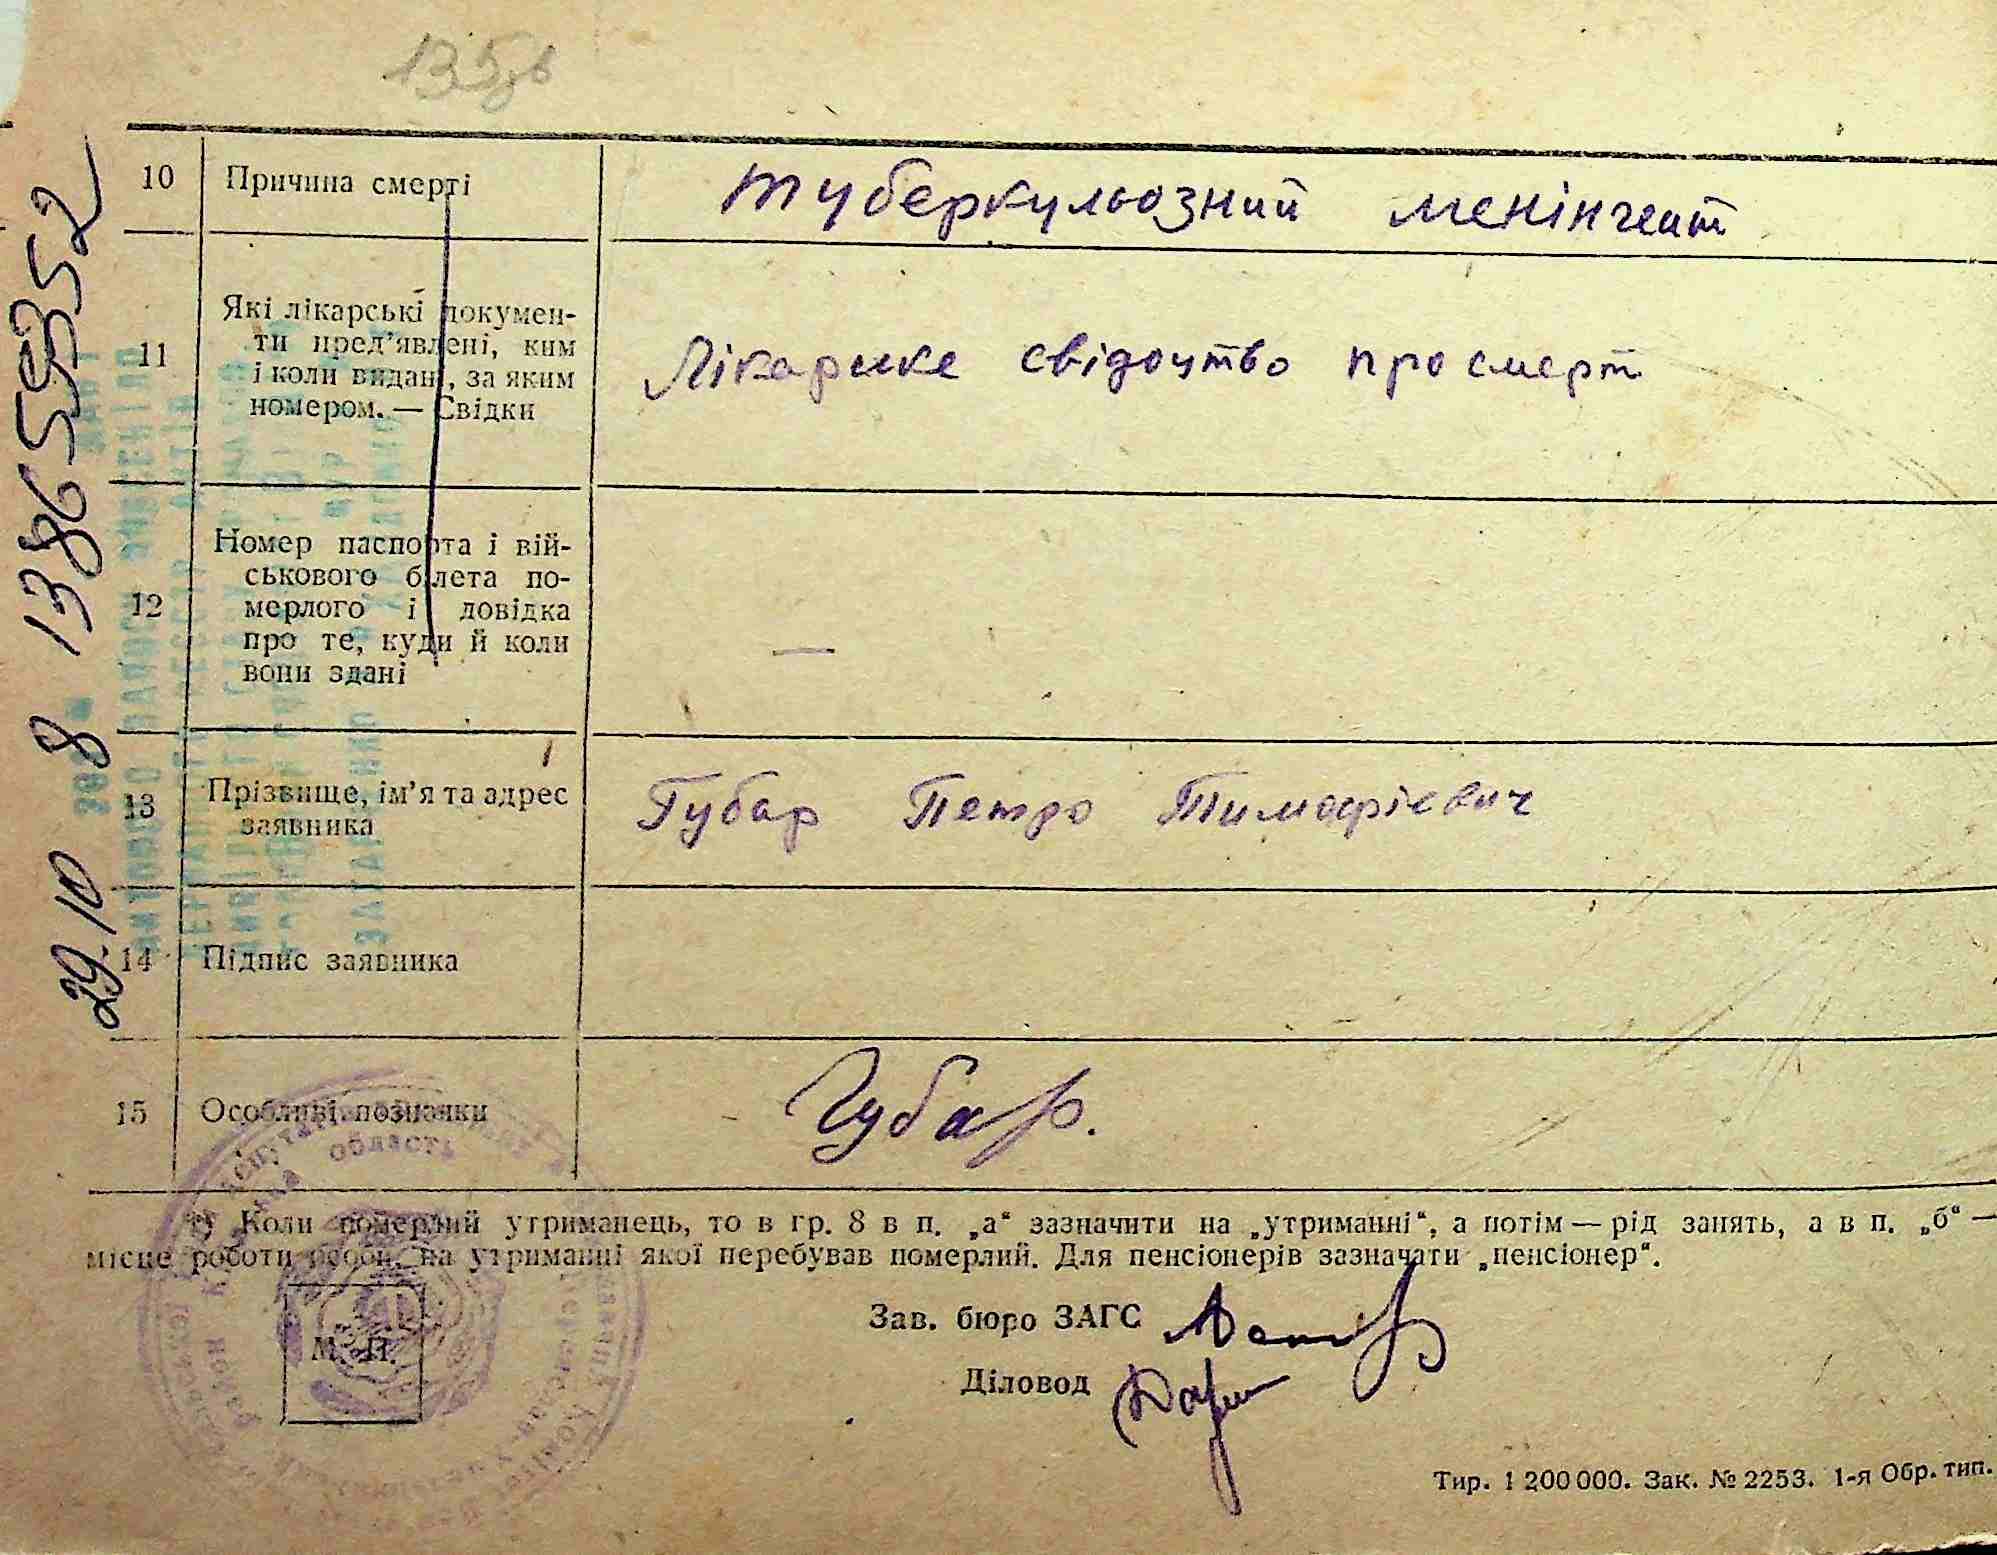 10 Причина смерті
Туберкульозний менінгеит
11 Які лікарські докумен-
ти пред’явлені, ким
і коли видані, за яким
номером. — Свідки
Лікарське свідоцтво про смерт
12 Номер паспорта і вій-
ськового білета по-
мерлого і довідка
про те, куди й коли
вони здані
—
13 Прізвище, ім’я та адрес
заявника
Губар Петро Тимофієвич
14 Підпис заявника
15 Особливі познаки
Губар.
Коли померлий утриманець, то в гр. 8 в п. „а“ зазначити на „утриманні“, а потім — рід занять, а в п. „б“ —
місце роботи особи, на утриманні якої перебував померлий. Для пенсіонерів зазначати „пенсіонер“.
Зав. бюро ЗАГС
Діловод
М. П.
область
Тир. 1 200 000. Зак. № 2253. 1-я Обр. тип.
29.10 8 138655352